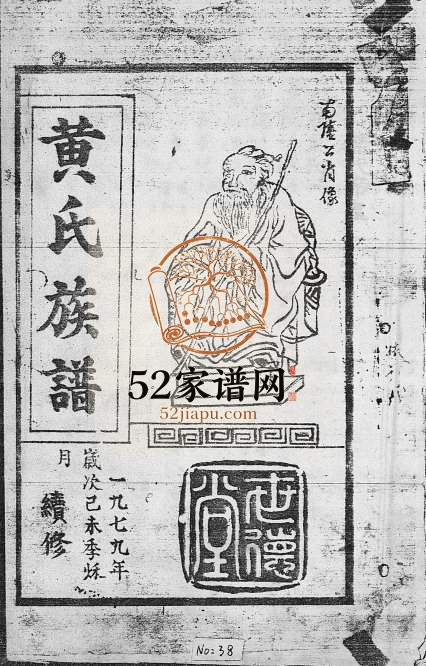 南陸公肖像
黄氏族譜
52家谱网
52jiapu.com
一九七九年
歲次己未季秌
月
續修
世德堂
No:38